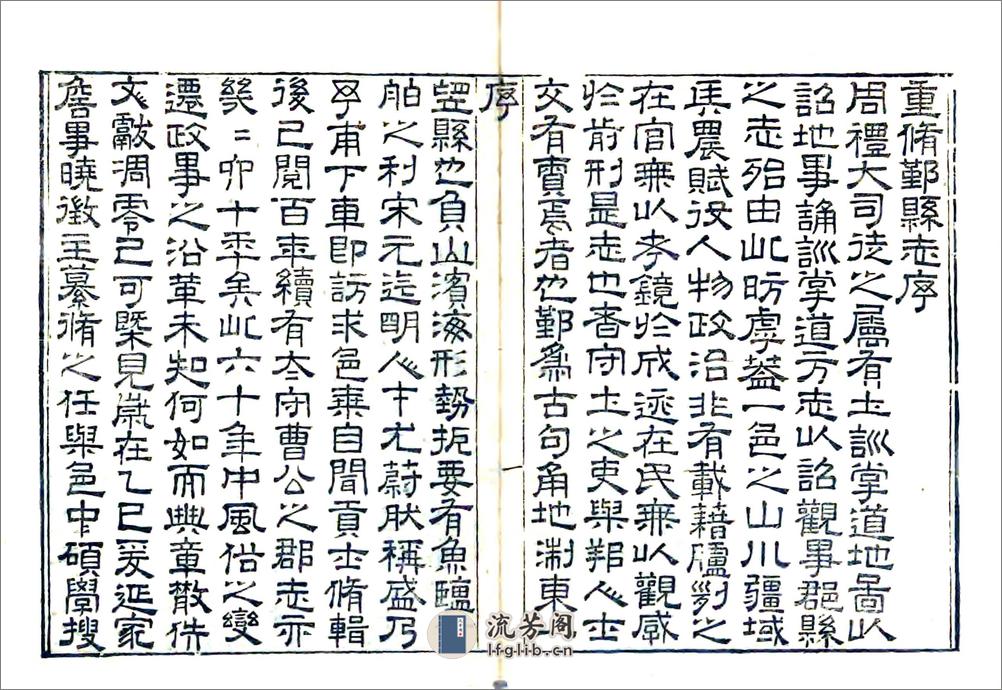 重脩鄞縣志序
周禮大司徒之屬有土訓掌道地啚以
詔地事誦訓掌道方志以詔觀事郡縣
之志殆由此昉虖蓋一邑之山川疆域
與農賦役人物政治非有載藉臚列之
在官無以考鏡於成迹在民無以觀感
於前刑是志也者守土之吏與邦人士
交有責焉者也鄞為古句甬地淛東
序
一
望縣也負山濱海形勢扼要有魚鹽
舶之利宋元迄明人才尤蔚肰稱盛乃
甫下車即訪求邑乘自聞貢士脩輯
後已閱百年續有太守曹公之郡志亦
幾二卯十年矣此六十年中風俗之變
遷政事之沿革未知何如而典章散佚
文獻凋零已可槩見歲在乙巳爰延家
詹事曉徵主纂脩之任與邑中碩學搜
流芳阁
lfglib.cn